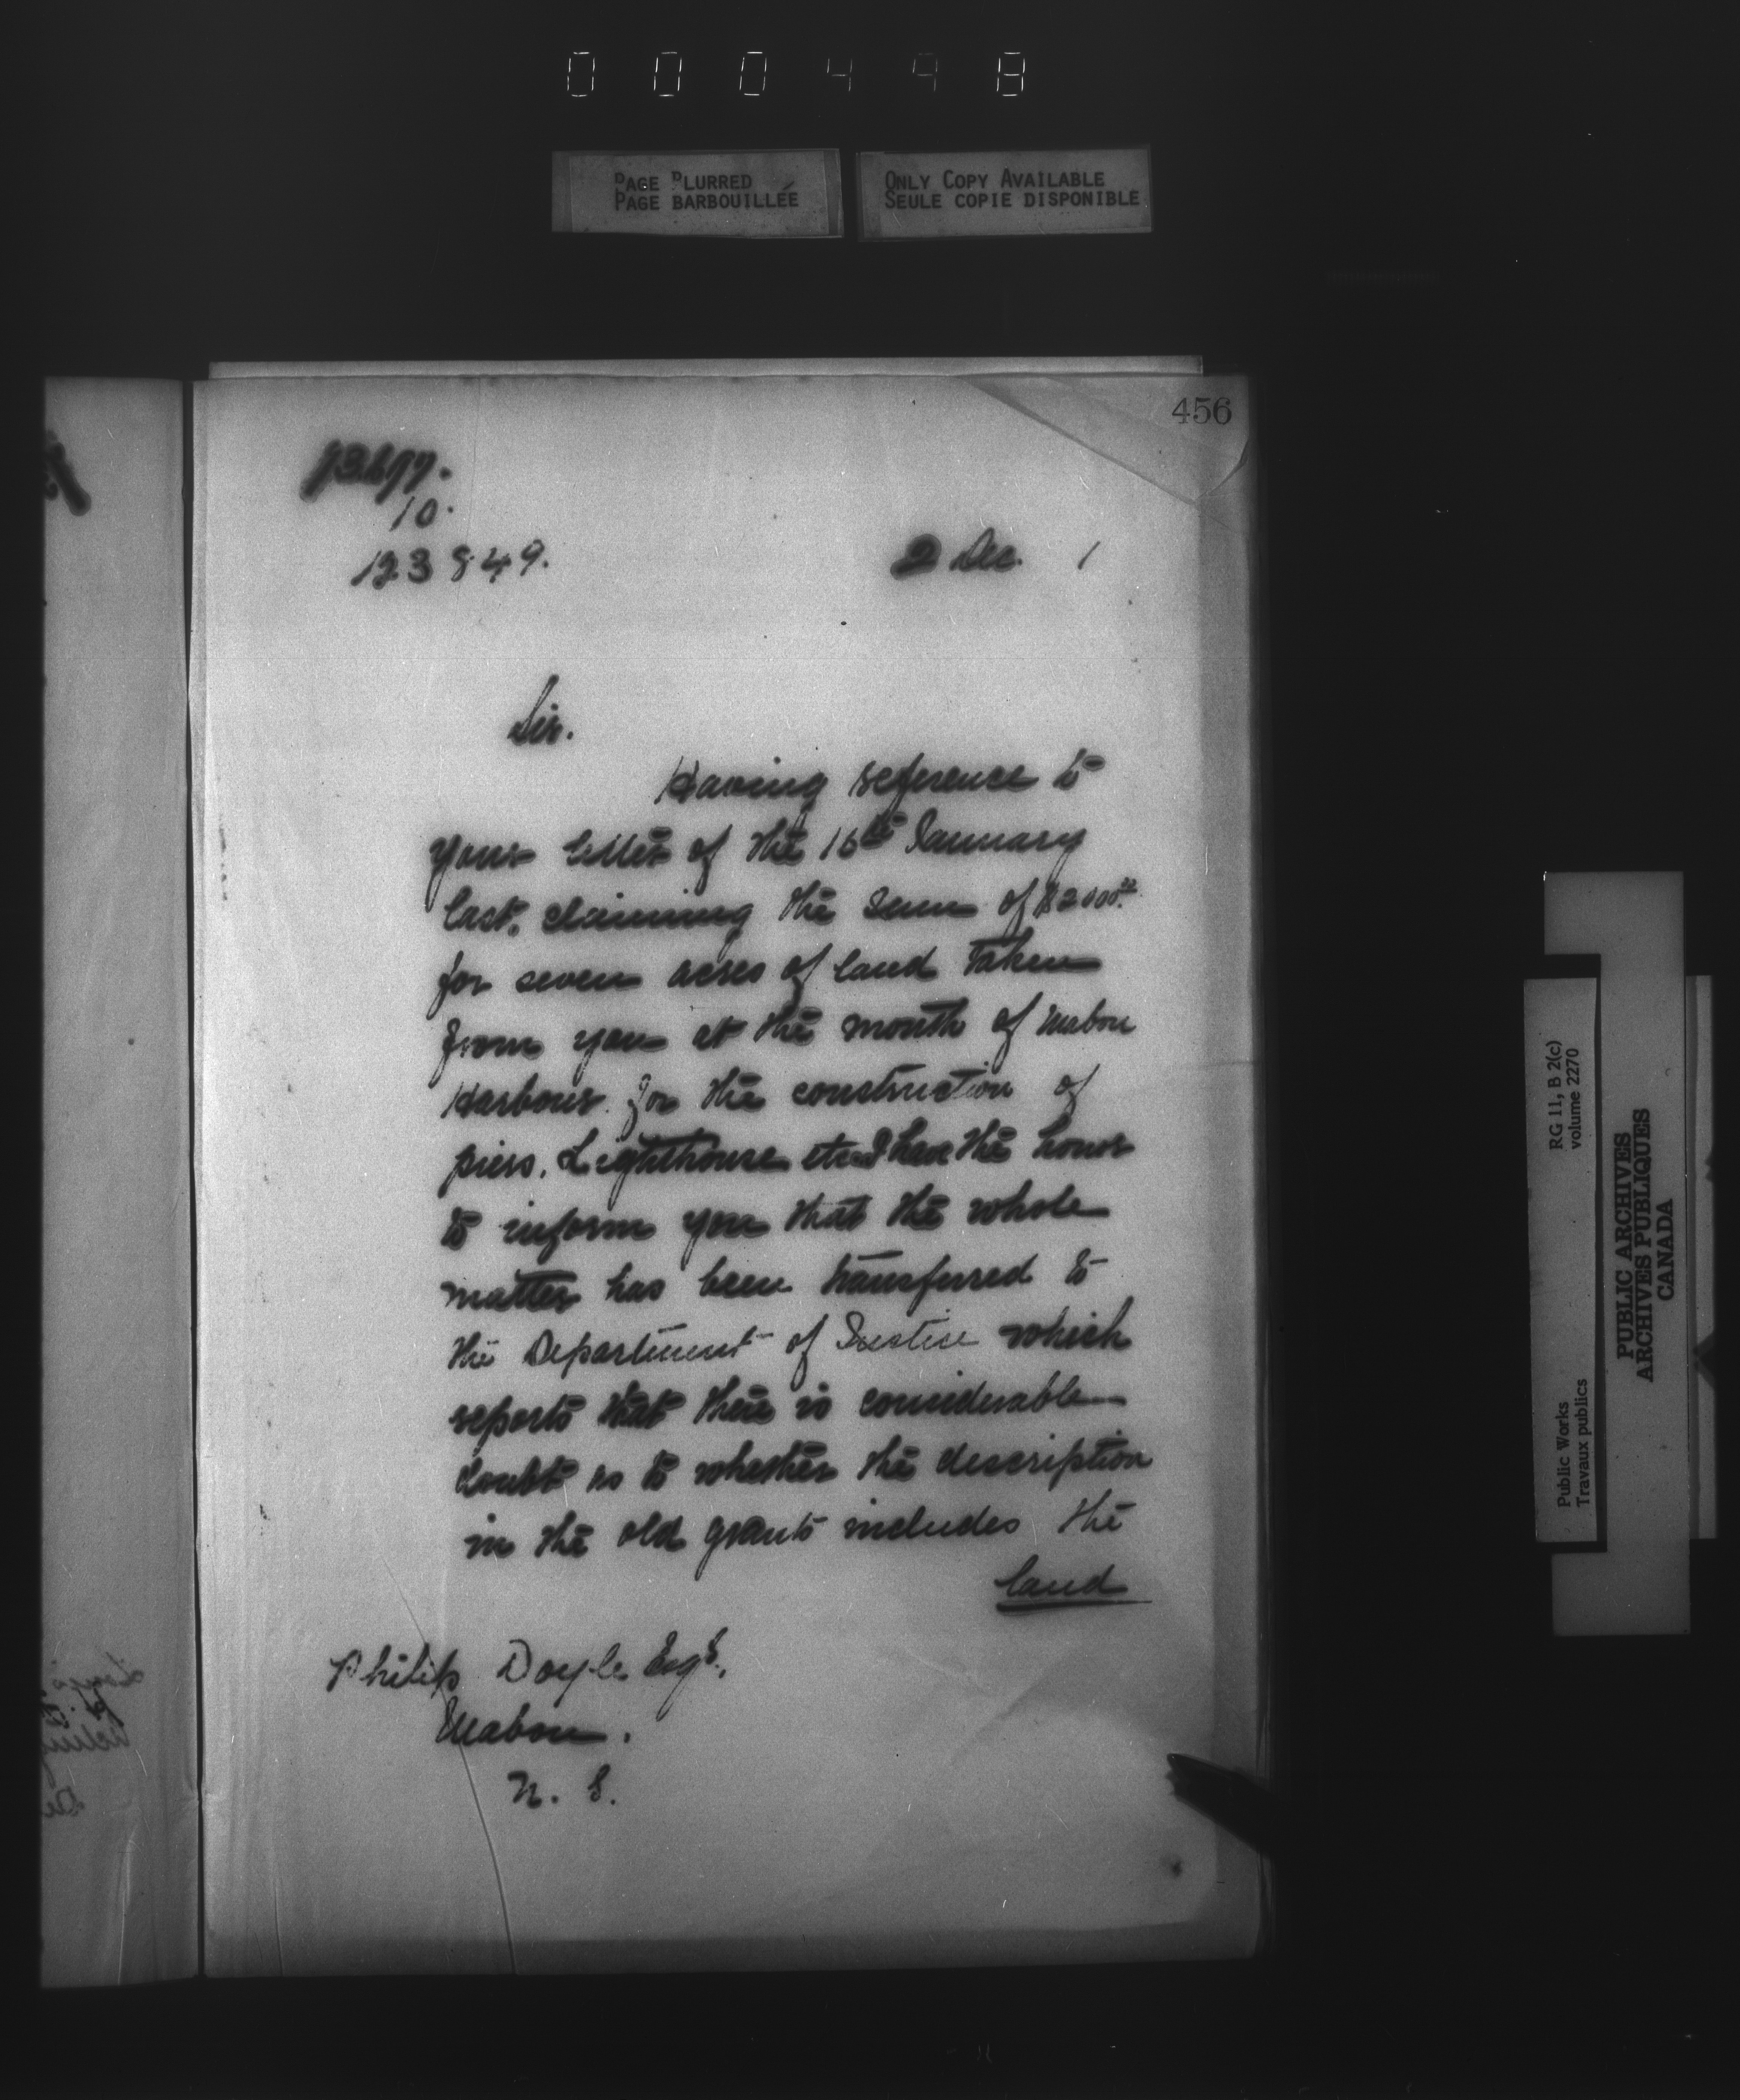 000498
PAGE BLURRED
PAGE BARBOUILLÉE
ONLY COPY AVAILABLE
SEULE COPIE DISPONIBLE
456
10.
123849.
2 Dec. 1
Sir.
Having reference to
your letter of the 15th January
last, claiming the sum of $2000.00
for seven acres of land taken
from you at the mouth of Mabou
Harbour for the construction of
piers, Lighthouse etc. I have the honor
to inform you that the whole
matter has been transferred to
the Department of Justice which
reports that there is considerable
doubt as to whether the description
in the old grants includes the
land
Philip Doyle Esqr.,
Mabou.
N. S.
RG 11, B 2(c)
volume 2270
Public Works
Travaux publics
PUBLIC ARCHIVES
ARCHIVES PUBLIQUES
CANADA